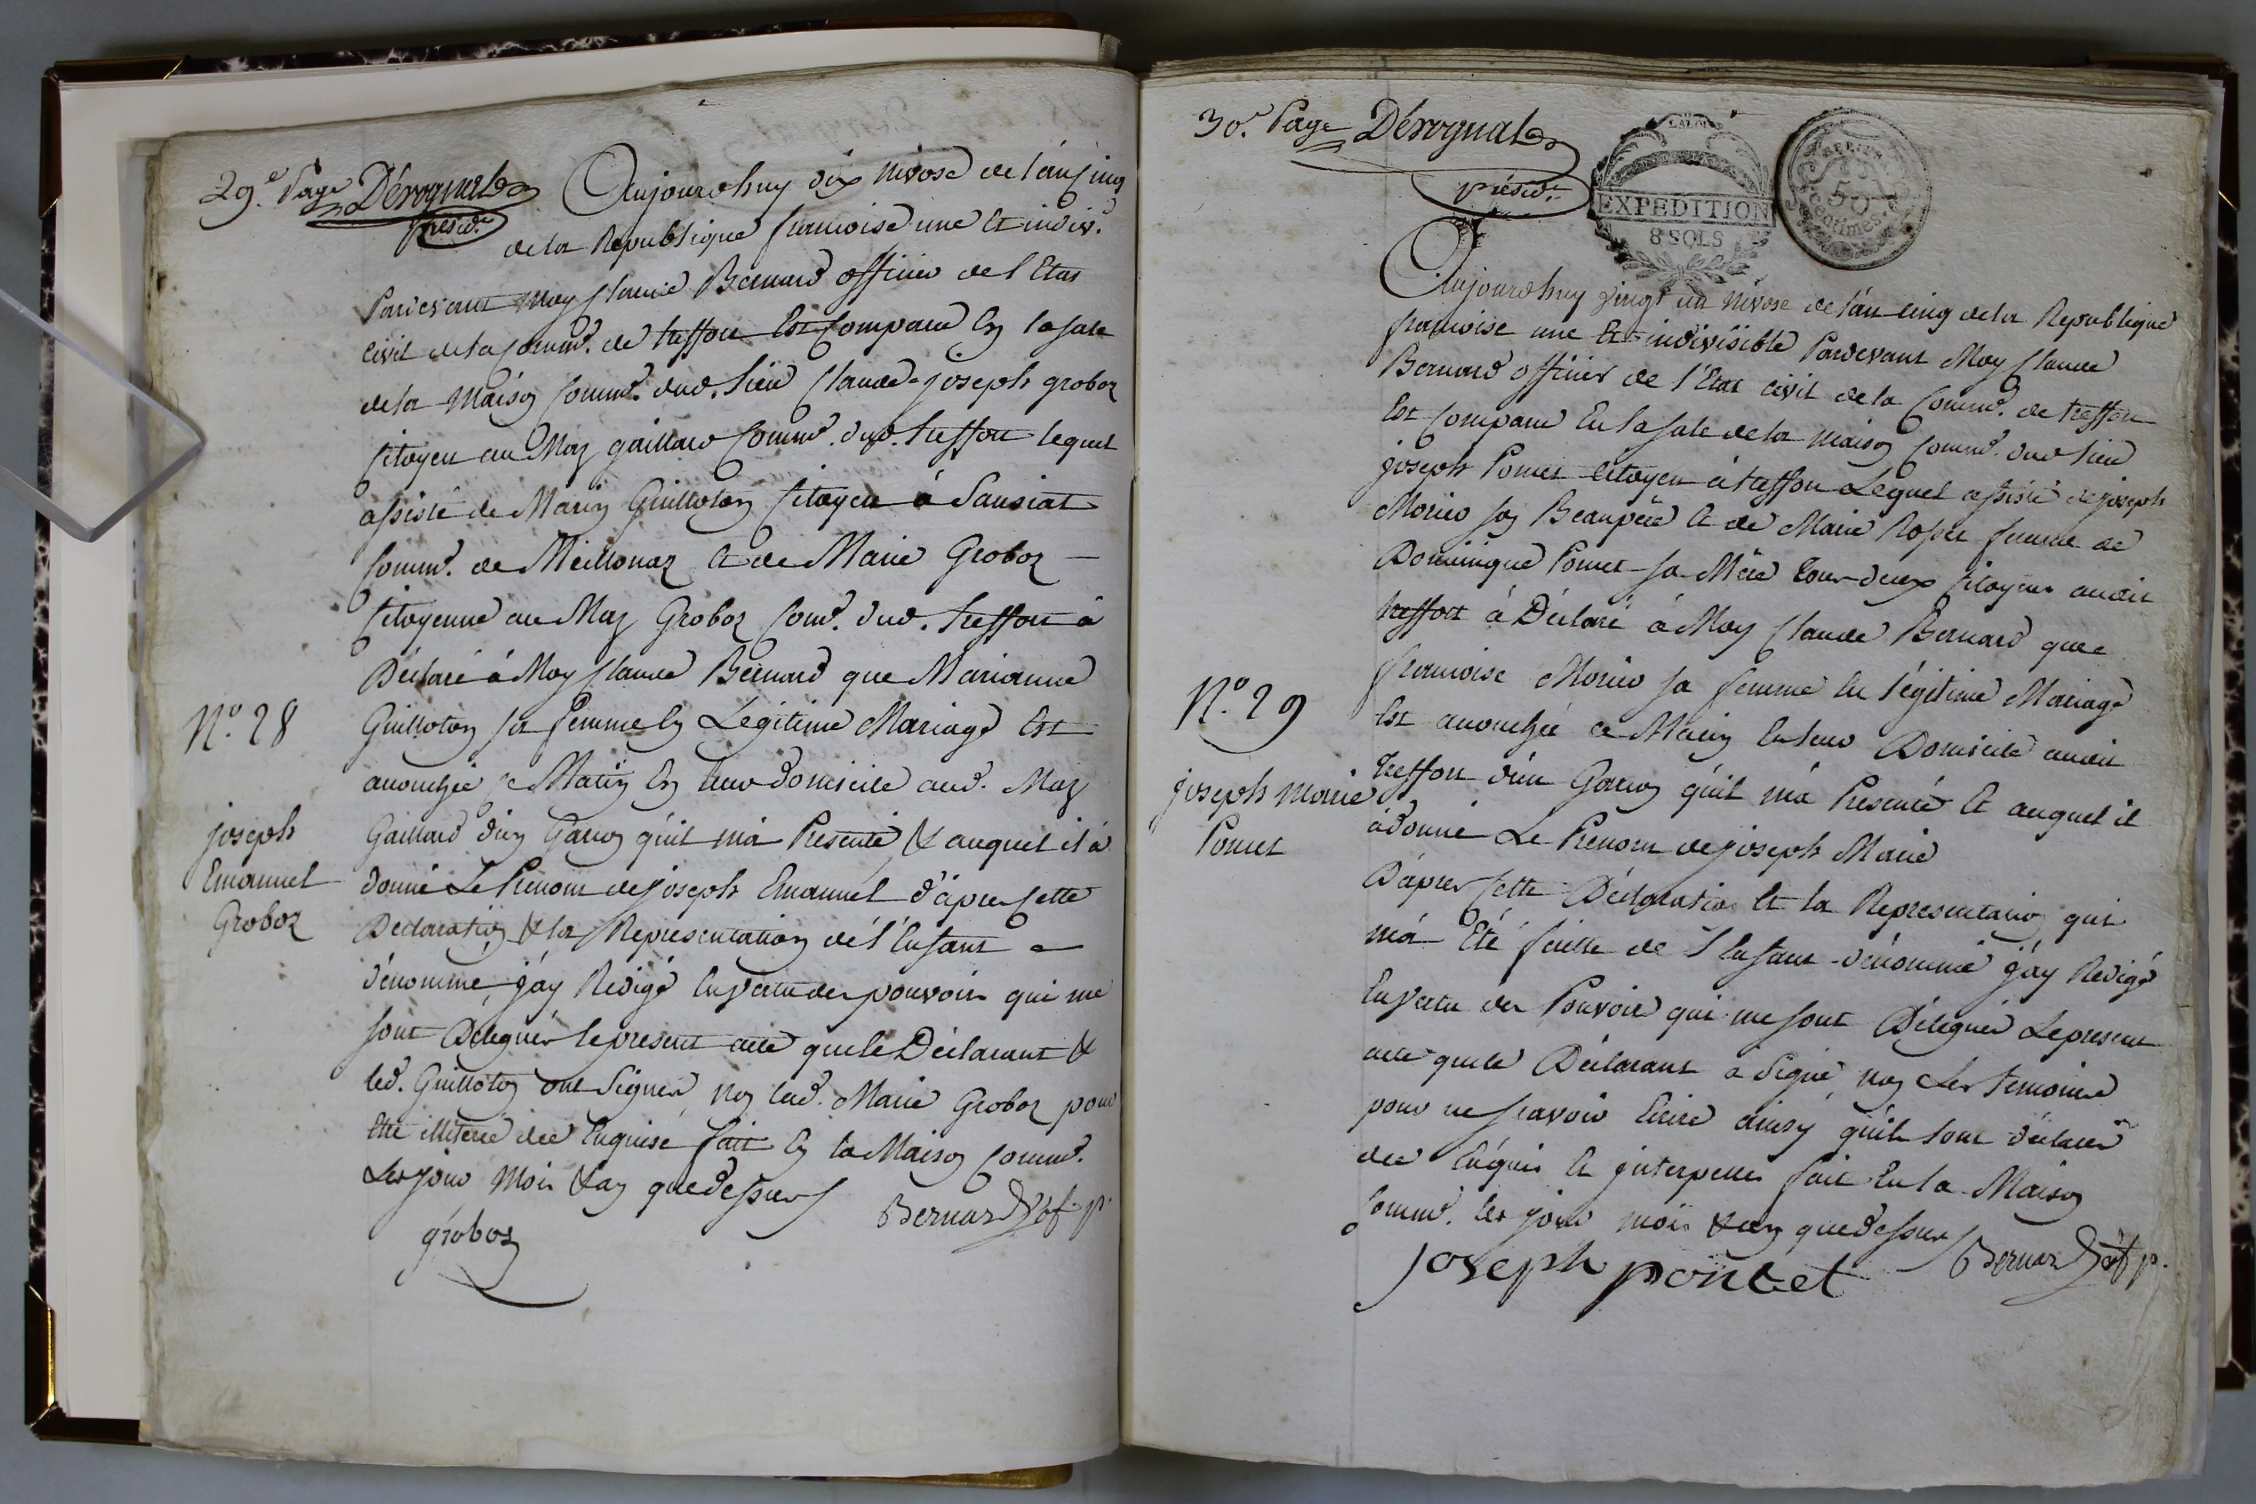 29.e Page Dérognat
présid.t
Aujourdhuy dix nivose de l'an Cinq
de la Republique francoise une Et indiv.
Pardevant Moy Claude Bernard officier de l'Etat
Civil de la Comm.e de treffort Est Comparu En la sale
de la Maison Comm.e dud. lieu Claude-joseph groboz
Citoyen au Maz gaillard Comm.e dud. treffort lequel
assisté de Marin Guilloton Citoyen à Sansiat
Comm.e de Meillonaz Et de Marie Groboz
Citoyenne au Maz Groboz Com.e dud. treffort à
Déclaré à Moy Claude Bernard que Marianne
Guilloton sa femme En Legitime Mariage Est
acouchée ce Matin En leur domicile aud. Maz
Gaillard d'un Garcon qu'il m'a Presenté & auquel il à
donné Le Prenom de joseph Emanuel d'après Cette
Declaration & la Representation dé l'Enfant
dénommé j'ay Redigé En vertu des pouvoirs qui me
sont Délégués le present acte que le Déclarant &
led. Guilloton ont Signés non lad. Marie Groboz pour
Etre illiterée de ce Enquise fait En la Maison Comm.e
Les jour Mois & an que dessus
N.o 28
joseph
Emanuel
Groboz
groboz
Bernard of. p.
30.e Page Dérognat
présid.t
EXPEDITION
8 SOLS
50
Centimes
Aujourdhuy vingt un Nivose de l'an cinq de la Republique
francoise une Et indivisible Pardevant Moy Claude
Bernard officier de l'Etat civil de la Comm.e de treffort
Est Comparu En la sale de la Maison Comm.e dud lieu
joseph Poncet Citoyen à treffort Lequel assisté de joseph
Morier son Beaupére Et de Marie Rosset femme de
Dominique Poncet sa Mére tous deux Citoyens audit
treffort à Déclaré à Moy Claude Bernard que
francoise Morier sa femme En légitime Mariage
Est acouchée ce Matin En leur Domicile audit
treffort d'un Garcon qu'il m'à Presenté Et auquel il
à donné Le Prenom de joseph Marie
D'après Cette Déclaration Et la Representation qui
m'à Eté faitte de l'Enfant dénommé j'ay Redigé
En vertu des Pouvoirs qui me sont Délégués Le present
acte que le Déclarant a Signé non Les temoins
pour ne scavoir Ecrire ainsy qu'ils l'ont déclaré
de ce Enquis Et jnterpellés fait En la Maison
Comm.e les jour mois & an que dessus
N.o 29
joseph Marie
Poncet
joseph poncet
Bernard of p.